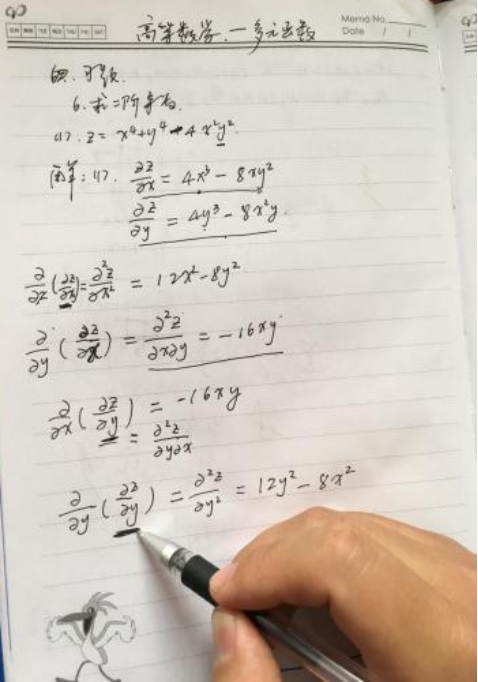 SUN MON TUE WED THU FRI SAT
Memo No.
Date / /
高等数学.—多元函数
四.习题.
6.求二阶导数.
(1). z = x⁴+y⁴-4x²y².
解:(1). ∂z/∂x = 4x³-8xy²
∂z/∂y = 4y³-8x²y.
∂/∂x(∂z/∂x)=∂²z/∂x² = 12x²-8y²
∂/∂y(∂z/∂x) = ∂²z/∂x∂y = -16xy
∂/∂x(∂z/∂y) = -16xy
= ∂²z/∂y∂x
∂/∂y(∂z/∂y) = ∂²z/∂y² = 12y²-8x²